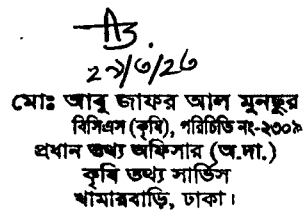 ২৯/৩/২৩
মোঃ আবু জাফর আল মুনছুর
বিসিএস (কৃষি), পরিচিতি নং-২৩০৯
প্রধান তথ্য অফিসার (অ.দা.)
কৃষি তথ্য সার্ভিস
খামারবাড়ি, ঢাকা।